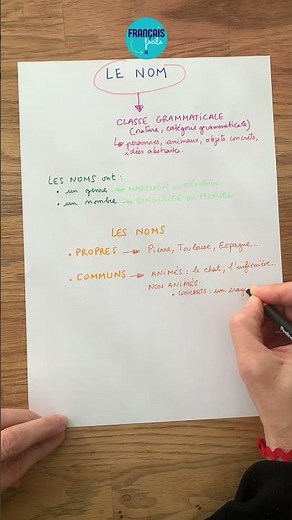 FRANÇAIS
facile
LE NOM
CLASSE GRAMMATICALE
(nature, catégorie grammaticale)
↳ personnes, animaux, objets concrets,
idées abstraites...
LES NOMS ont :
• un genre → MASCULIN ou FÉMININ
• un nombre → SINGULIER ou PLURIEL
LES NOMS
• PROPRES → Pierre, Toulouse, Espagne...
• COMMUNS → ANIMÉS : le chat, l'infirmière...
NON ANIMÉS:
• CONCRETS : un cray